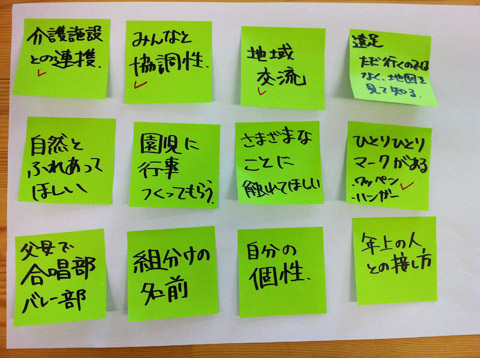 介護施設
との連携.
みんなと
協調性.
地域
交流
遠足
ただ行くのではなく、地図を
見て知る.
自然と
ふれあって
ほしい
園児に
行事
つくってもらう.
さまざまな
ことに
触れてほしい
ひとりひとり
マークがある
.ワッペン
.ハンガー
父母で
合唱部
バレー部
組分けの
名前
自分の
個性.
年上の人
との接し方